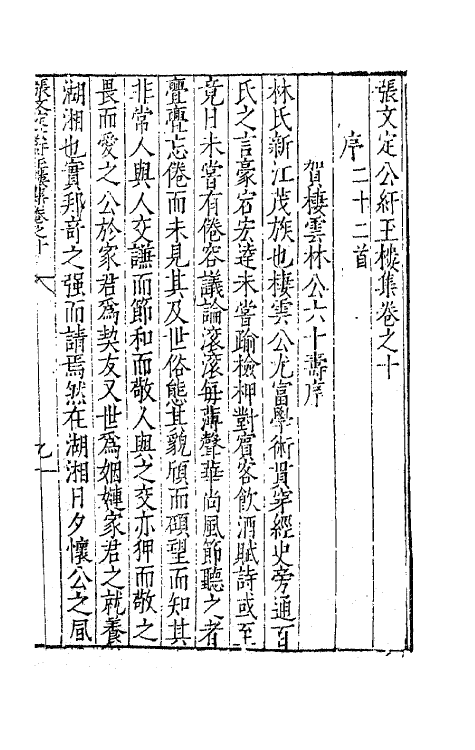 張文定公紆玉樓集卷之十
序二十二首
賀棲雲林公六十壽序
林氏新江茂族也棲雲公尤富學術貫穿經史旁通百
氏之言豪宕宏達未嘗踰檢柙對賓客飲酒賦詩或至
竟日未嘗有倦容議論滚滚每薄聲華尚風節聽之者
亹亹忘倦而未見其及世俗態其貌頎而碩望而知其
非常人與人交謙而節和而敬人與之交亦狎而敬之
畏而愛之公於家君爲契友又世爲姻婕家君之就養
湖湘也實邦奇之强而請焉然在湖湘日夕懷公之風
張文定公紆玉樓集卷之十
乙一